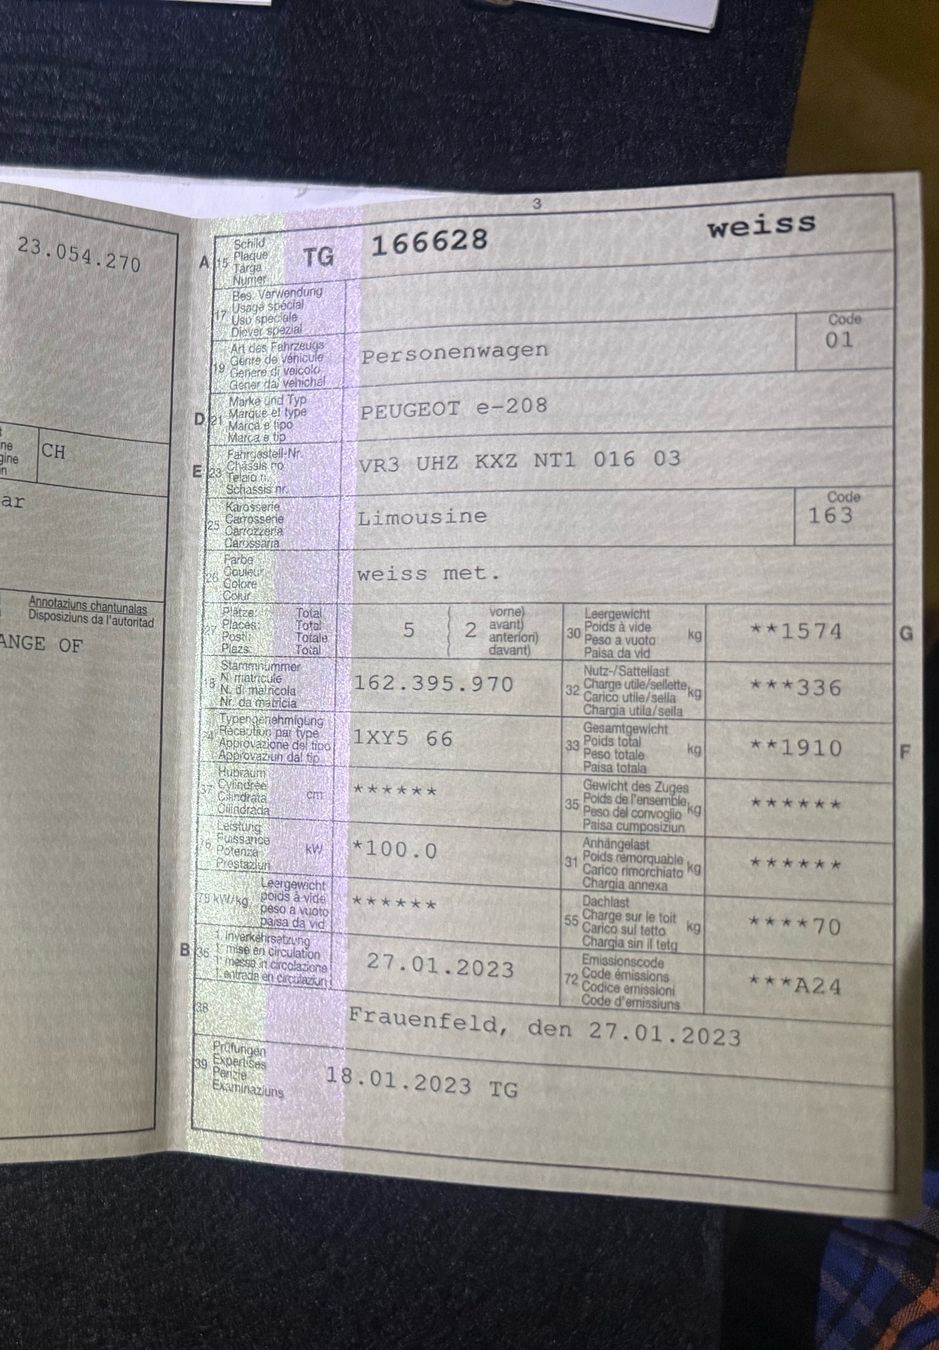 23.054.270
CH
ar
Annotaziuns chantunalas
Disposiziuns da l'autoritad
ANGE OF
3
A 15 Schild
Plaque
Targa
Numer
TG 166628 weiss
17 Bes. Verwendung
Usage spécial
Uso speciale
Diever spezial
19 Art des Fahrzeugs
Genre de véhicule
Genere di veicolo
Gener dal vehichel
Personenwagen
Code
01
D 21 Marke und Typ
Marque et type
Marca e tipo
Marca e tip
PEUGEOT e-208
E 23 Fahrgestell-Nr.
Châssis no
Telaio n.
Schassis nr.
VR3 UHZ KXZ NT1 016 03
25 Karosserie
Carrosserie
Carrozzeria
Carossaria
Limousine
Code
163
26 Farbe
Couleur
Colore
Colur
weiss met.
27 Plätze: Total
Places: Total
Posti: Totale
Plazs: Total
5 2
vorne)
avant)
anteriori)
davant)
30 Leergewicht
Poids à vide
Peso a vuoto
Paisa da vid
kg
**1574
G
18 Stammnummer
N. matricule
N. di matricola
Nr. da matricla
162.395.970
32 Nutz-/Sattellast
Charge utile/sellette
Carico utile/sella
Chargia utila/sella
kg
***336
24 Typengenehmigung
Réception par type
Approvazione del tipo
Approvaziun dal tip
1XY5 66
33 Gesamtgewicht
Poids total
Peso totale
Paisa totala
kg
**1910
F
37 Hubraum
Cylindrée
Cilindrata
Cilindrada
******
35 Gewicht des Zuges
Poids de l'ensemble
Peso del convoglio
Paisa cumposiziun
kg
******
76 Leistung
Puissance
Potenza
Prestaziun
kW
*100.0
31 Anhängelast
Poids remorquable
Carico rimorchiato
Chargia annexa
kg
******
78 kW/kg Leergewicht
poids à vide
peso a vuoto
paisa da vid
******
55 Dachlast
Charge sur le toit
Carico sul tetto
Chargia sin il tetg
kg
****70
B 36 1. Inverkehrsetzung
1. mise en circulation
1. messa in circolazione
1. entrada en circulaziun
27.01.2023
72 Emissionscode
Code émissions
Codice emissioni
Code d'emissiuns
***A24
38
Frauenfeld, den 27.01.2023
39 Prüfungen
Expertises
Perizie
Examinaziuns
18.01.2023 TG